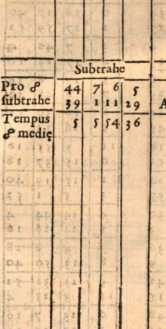 Subtrahe
Pro ☍ 44 7 6 5
ſubtrahe 39 1 11 29
Tempus 5 5 54 36
☍ medię